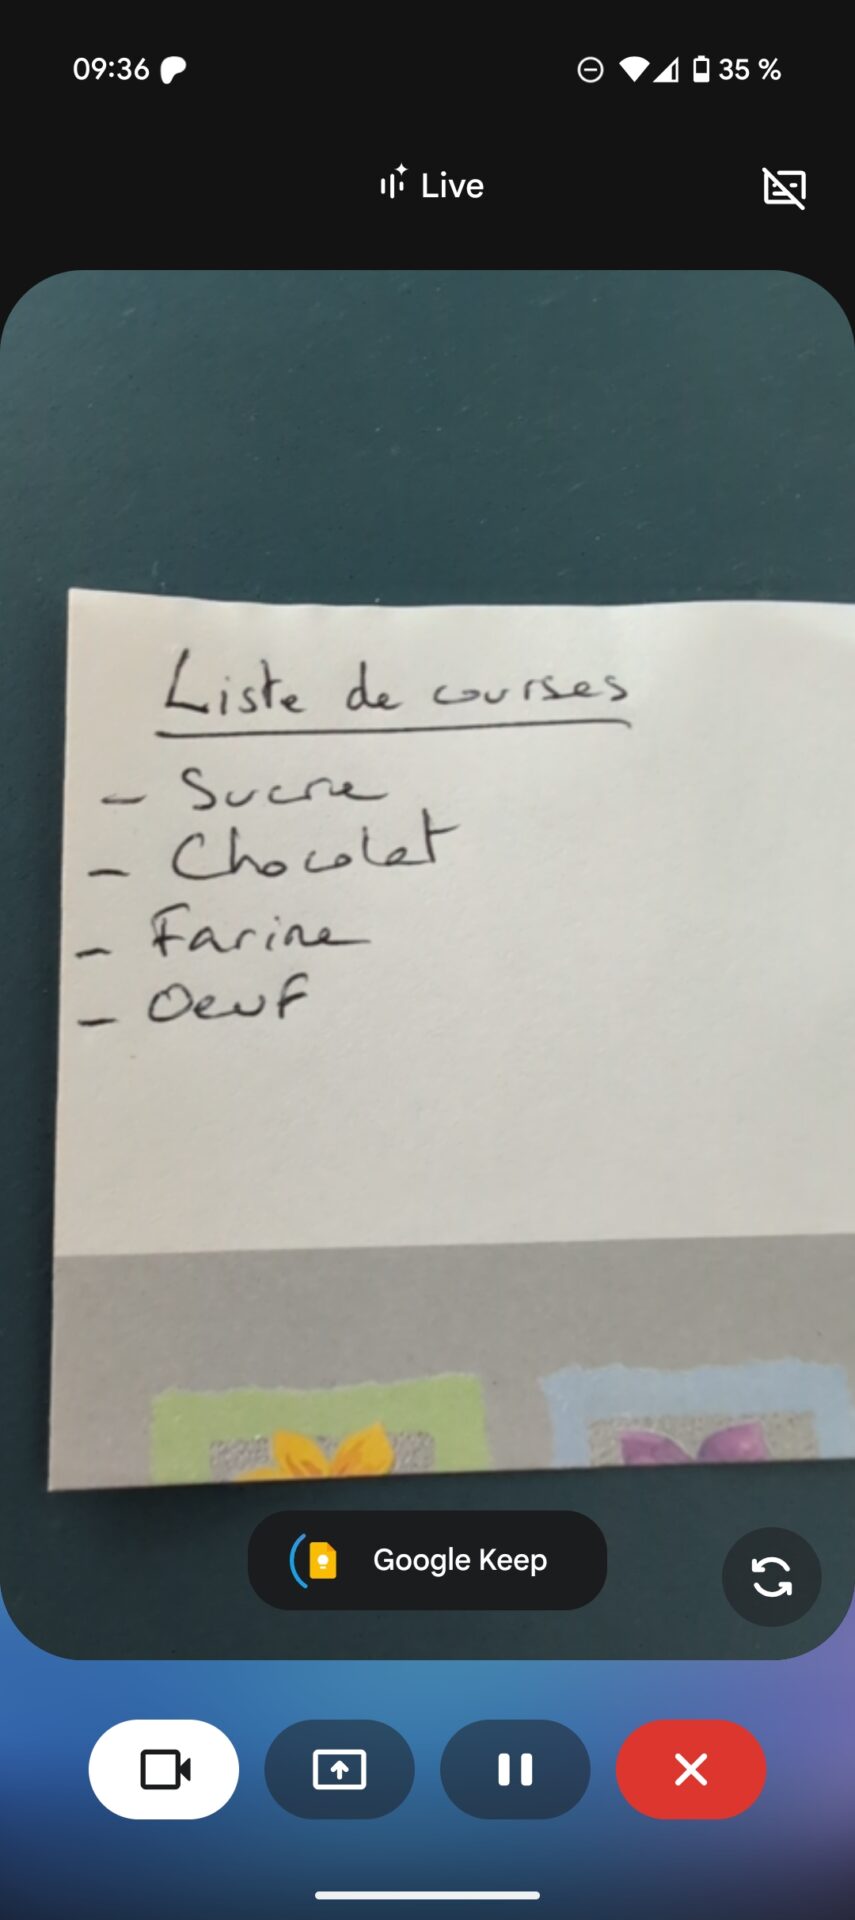 09:36 35 %
Live
Liste de courses
- Sucre
- Chocolat
- Farine
- Oeuf
Google Keep